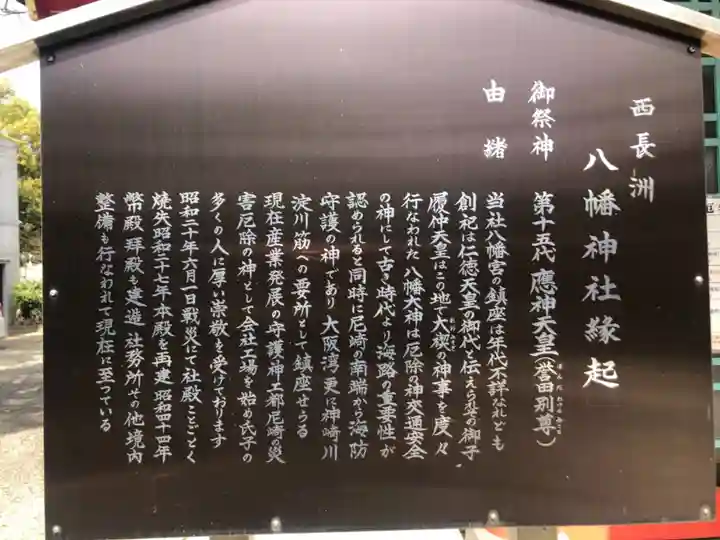 西長洲
八幡神社縁起
御祭神 第十五代 應神天皇(誉田別尊)
由緒
当社八幡宮の鎮座は年代不詳なれども
創祀は仁徳天皇の御代と伝えられ其の御子
履仲天皇はこの地で大禊の神事を度々
行なわれた 八幡大神は厄除の神交通安全
の神にして古き時代より海路の重要性が
認められると同時に尼崎の南端から海防
守護の神であり 大阪湾 更に神崎川
淀川筋への要所として鎮座せらる
現在産業発展の守護神工都尼崎の災
害厄除の神として会社工場を始め氏子の
多くの人に厚い崇敬を受けております
昭和二十年六月一日戦災にて社殿ことごとく
焼失昭和二十七年本殿を再建 昭和四十四年
幣殿 拝殿も建造 社務所その他境内
整備も行なわれて現在に至っている